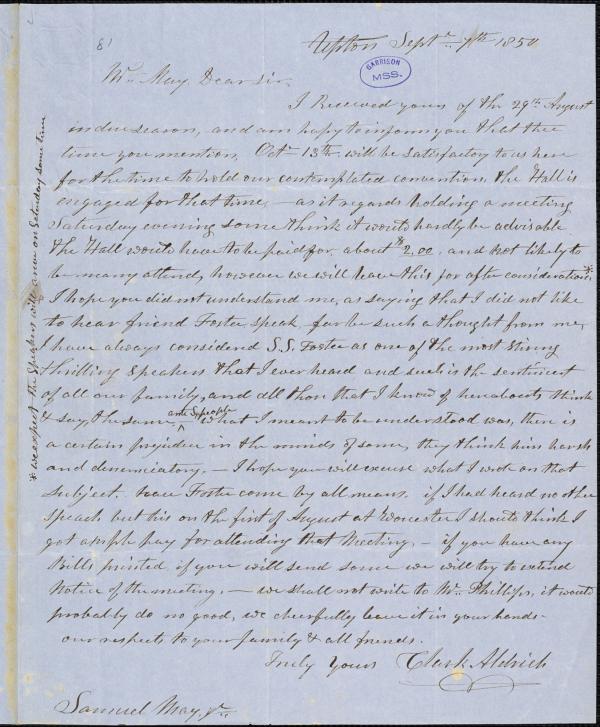 81
Upton Septr. 7th 1850
GARRISON
MSS.
Mr. May, Dear Sir.
I Received yours of the 29th. August
in due season, and am happy to inform you that the
time you mention, Oct. 13th. will be satisfactory to us here
for the time to hold our contemplated convention, the Hall is
engaged for that time, — as it regards holding a meeting
Saturday evening some think it would hardly be advisable
the Hall would have to be paid for, about $2.00, and not likely to
be many attend, however we will leave this for after consideration*
I hope you did not understand me, as saying that I did not like
to hear friend Foster speak, far be such a thought from me,
I have always considered S.S. Foster as one of the most strong
thrilling speakers that I ever heard and such is the sentiment
of all our family, and all those that I know of hereabouts think
& say, the same
anti S. people
what I meant to be understood was, there is
a certain prejudice in the minds of some, they think him harsh
and denunciatory, — I hope you will excuse what I wrote on that
subject. have Foster come by all means. if I had heard no other
speach but his on the first of August at Worcester I should think I
got ample pay for attending that Meeting, — if you have any
Bills printed if you will send some we will try to extend
Notice of the meeting, — we shall not write to Mr. Phillips, it would
probably do no good, we cheerfully leave it in your hands —
our respects to your family & all friends.
Truly Yours Clark Aldrich
Samuel May, Jr.
* we expect the Speakers will arrive on Saturday some time